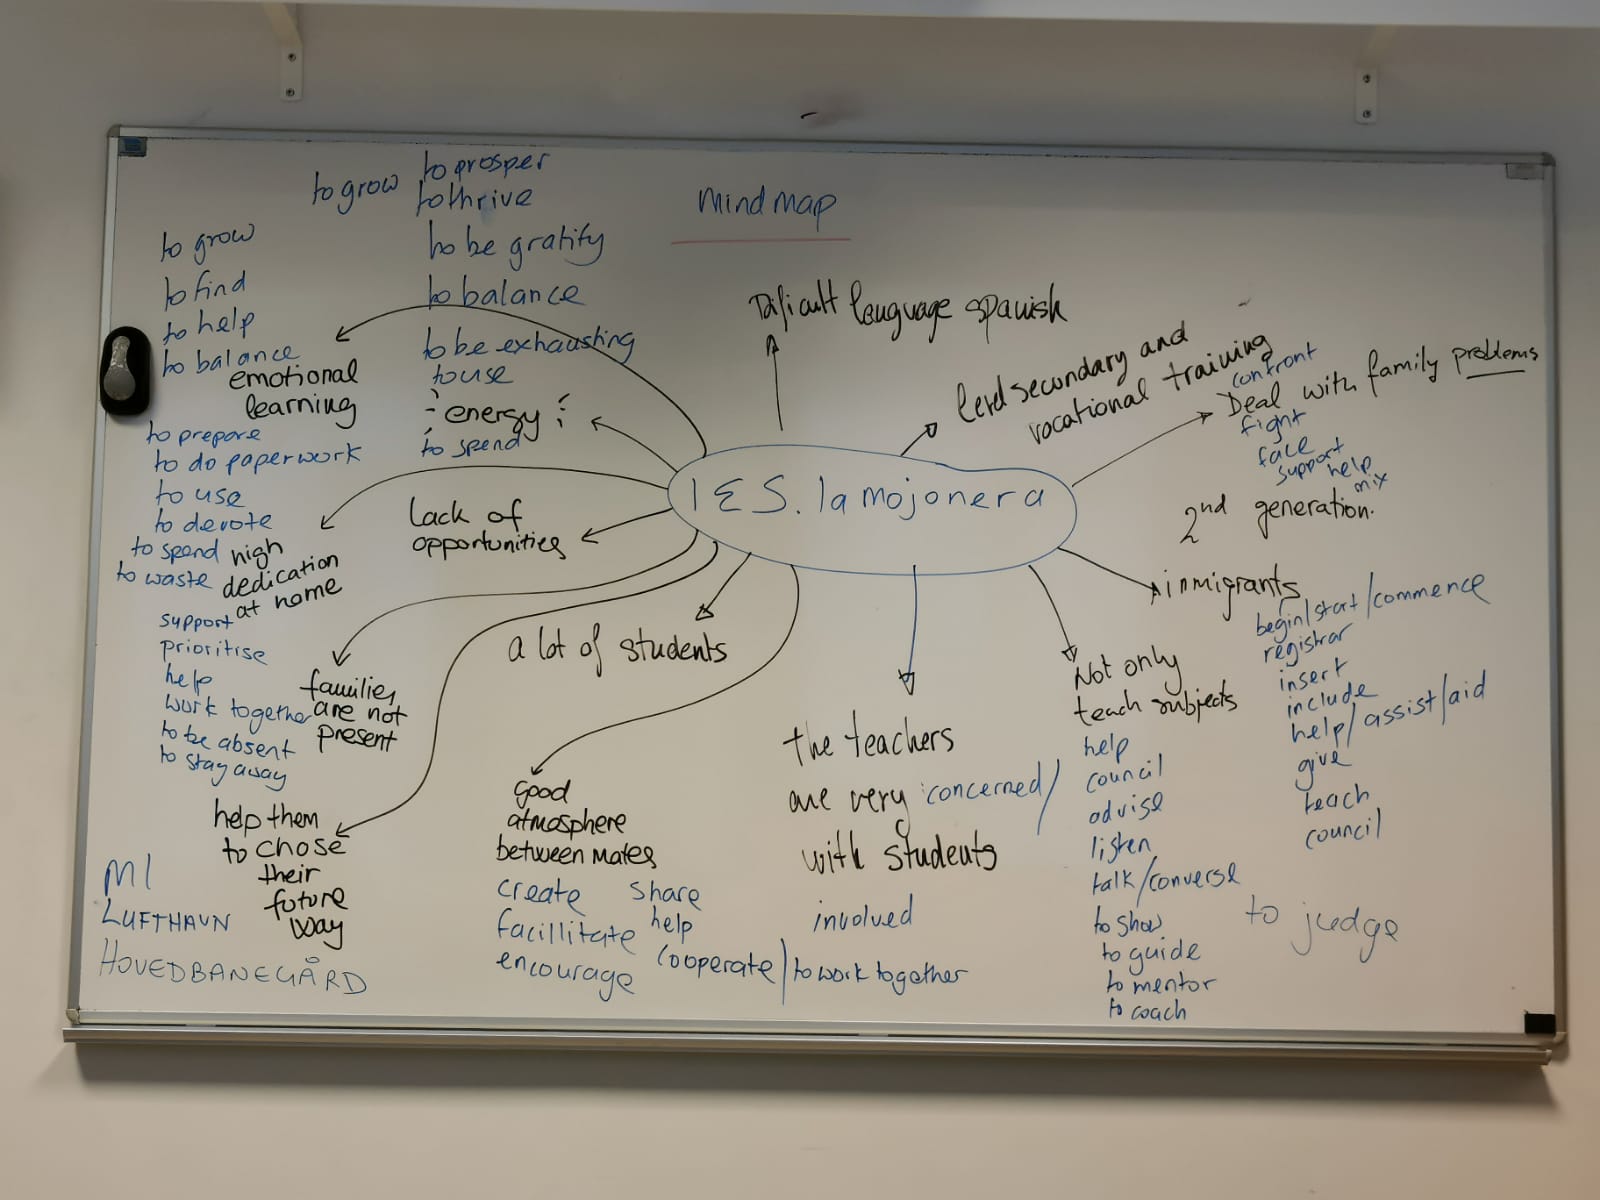 Mind map
to grow
to prosper
to thrive
to be gratify
to balance
to be exhausting
to use
energy
to spend
to grow
to find
to help
to balance
emotional
learning
to prepare
to do paperwork
to use
to devote
to spend
to waste
high
dedication
at home
support
prioritise
help
work together
to be absent
to stay away
families
are not
present
help them
to chose
their
future
way
MI
LUFTHAVN
HOVEDBANEGÅRD
Lack of
opportunities
IES. la mojonera
a lot of students
good
atmosphere
between mates
create
facillitate
encourage
share
help
cooperate / to work together
the teachers
are very concerned /
with students
involved
Dificult language spanish
level secondary and
vocational training
confront
Deal with family problems
fight
face
support
help
mix
2nd generation.
inmigrants
begin/start/commence
registrar
insert
include
help/assist/aid
give
teach
council
Not only
teach subjects
help
council
advise
listen
talk/converse
to show
to guide
to mentor
to coach
to judge